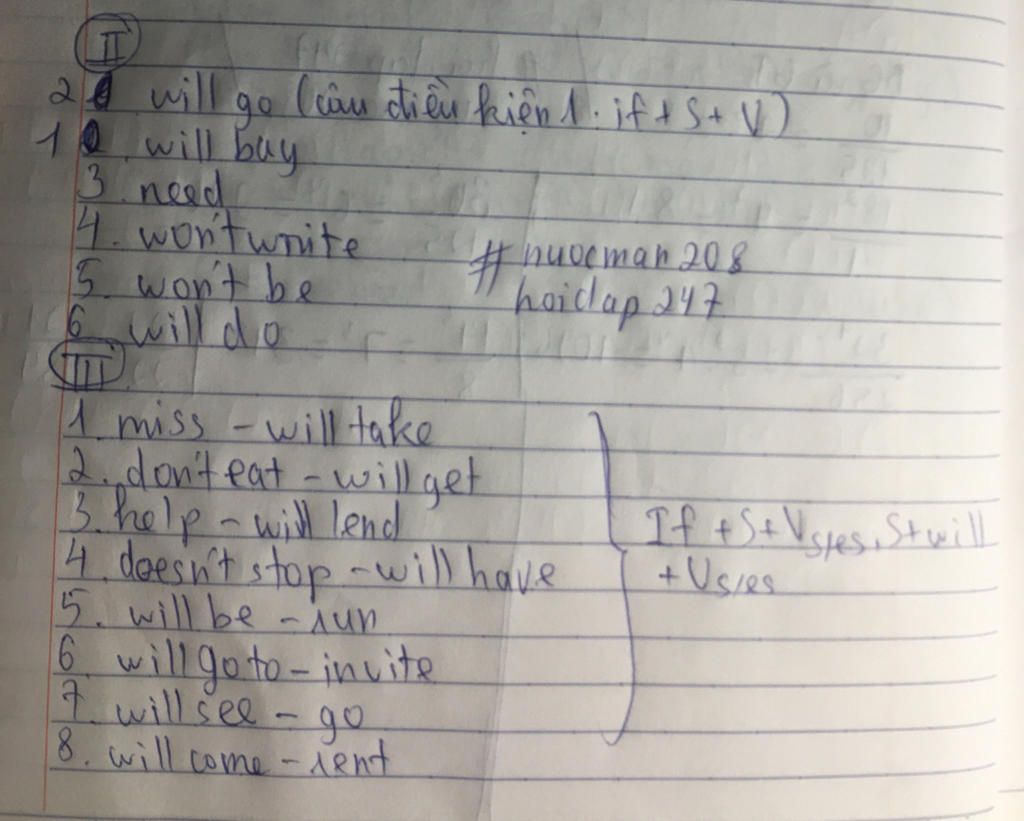 II
2 will go (câu điều kiện 1: if + S + V)
1 will buy
3. need
4. won't write
5. won't be
6 will do
#nuocman208
hoidap247
III
1. miss - will take
2. don't eat - will get
3. help - will lend
4. doesn't stop - will have
5. will be - run
6 will go to - invite
7. will see - go
8. will come - rent
If + S + Vs/es, S + will
+ Vs/es